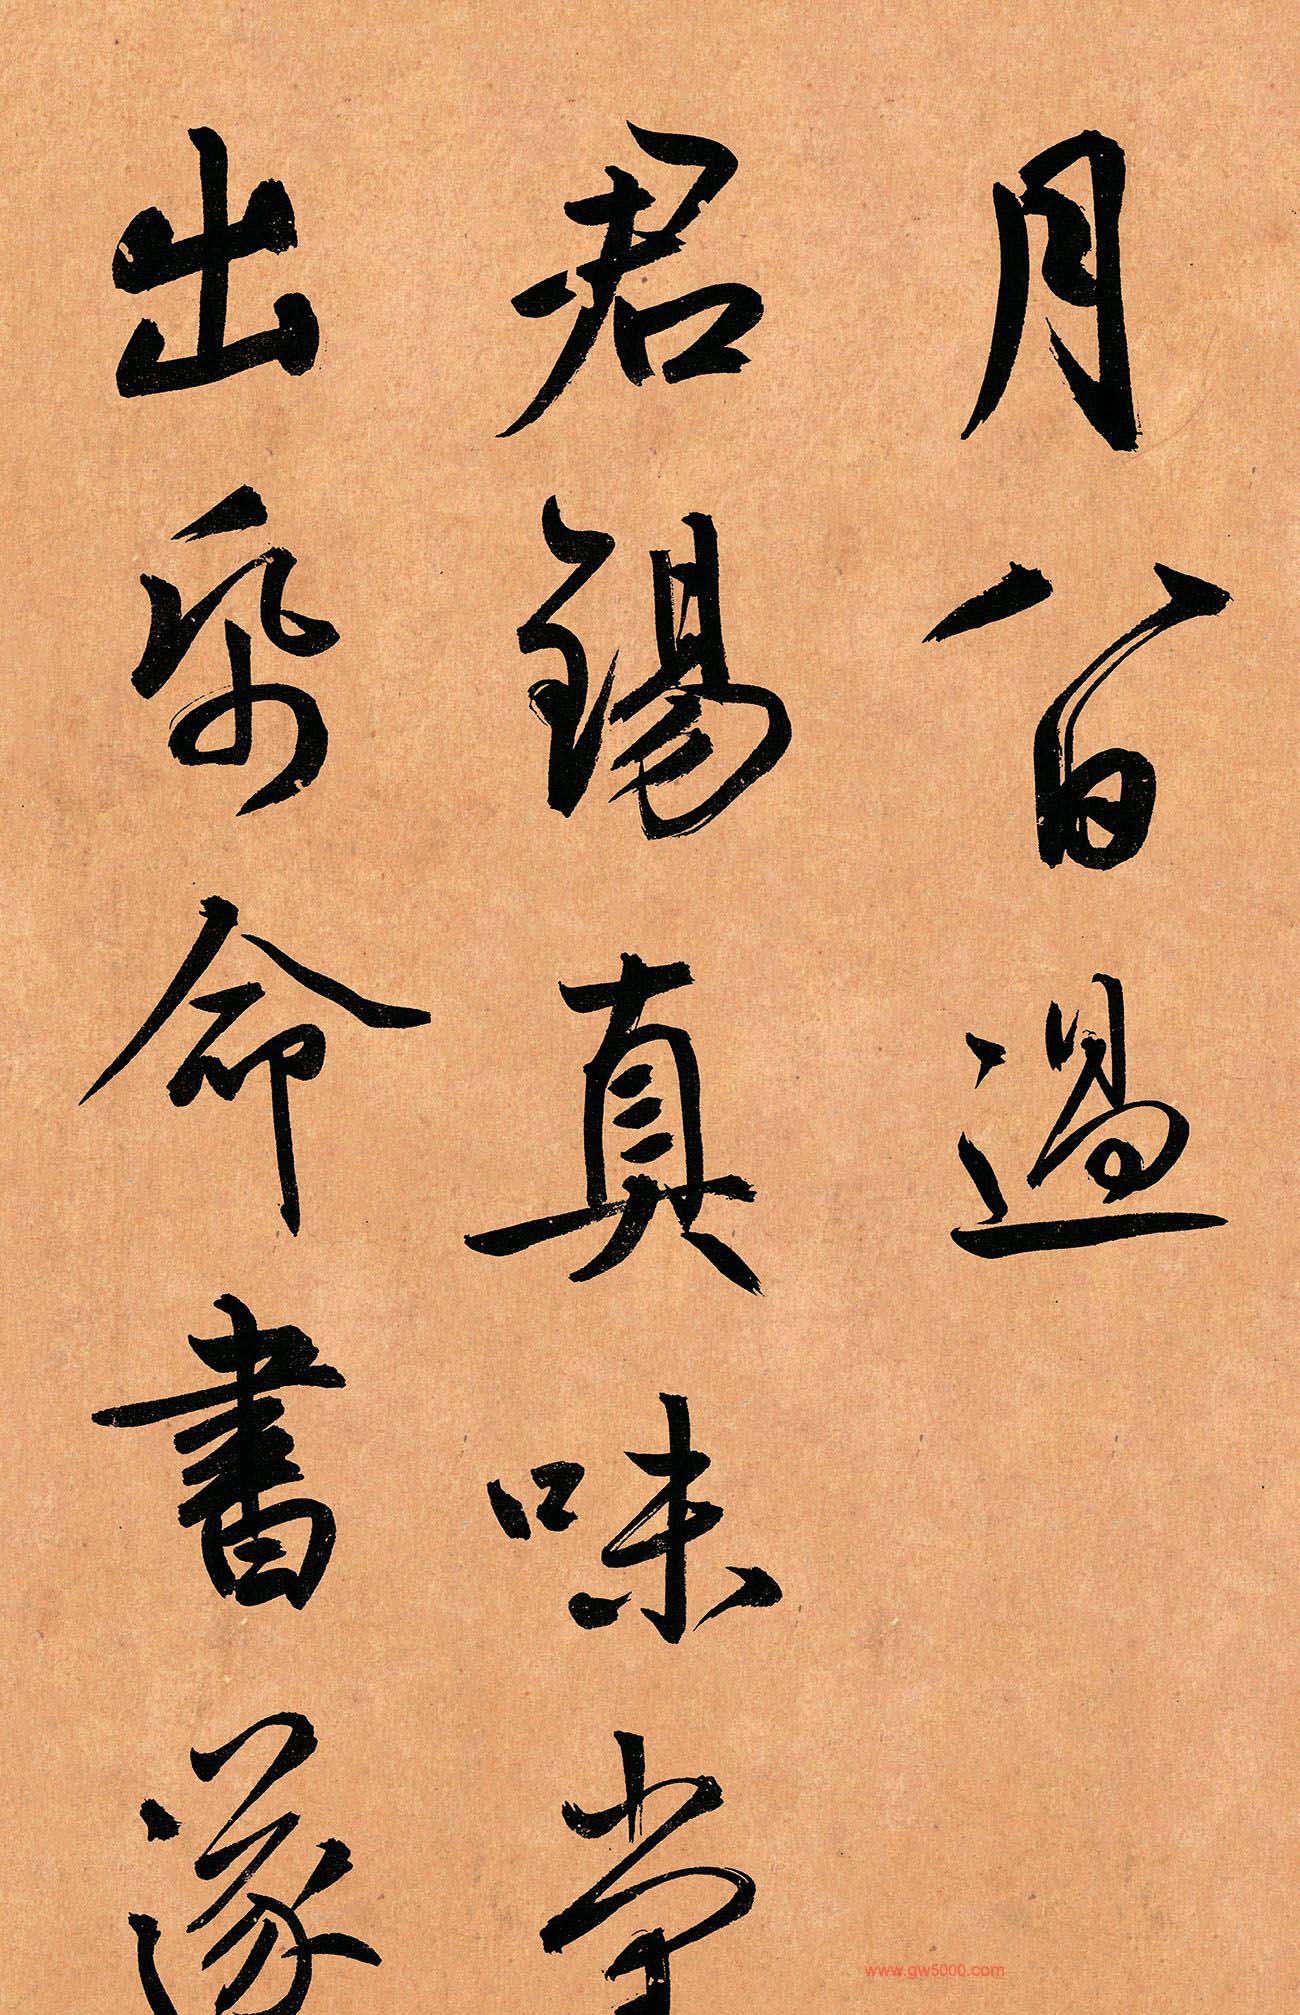 月八日過
君錫真味堂
出帋命書遂
www.gw5000.com